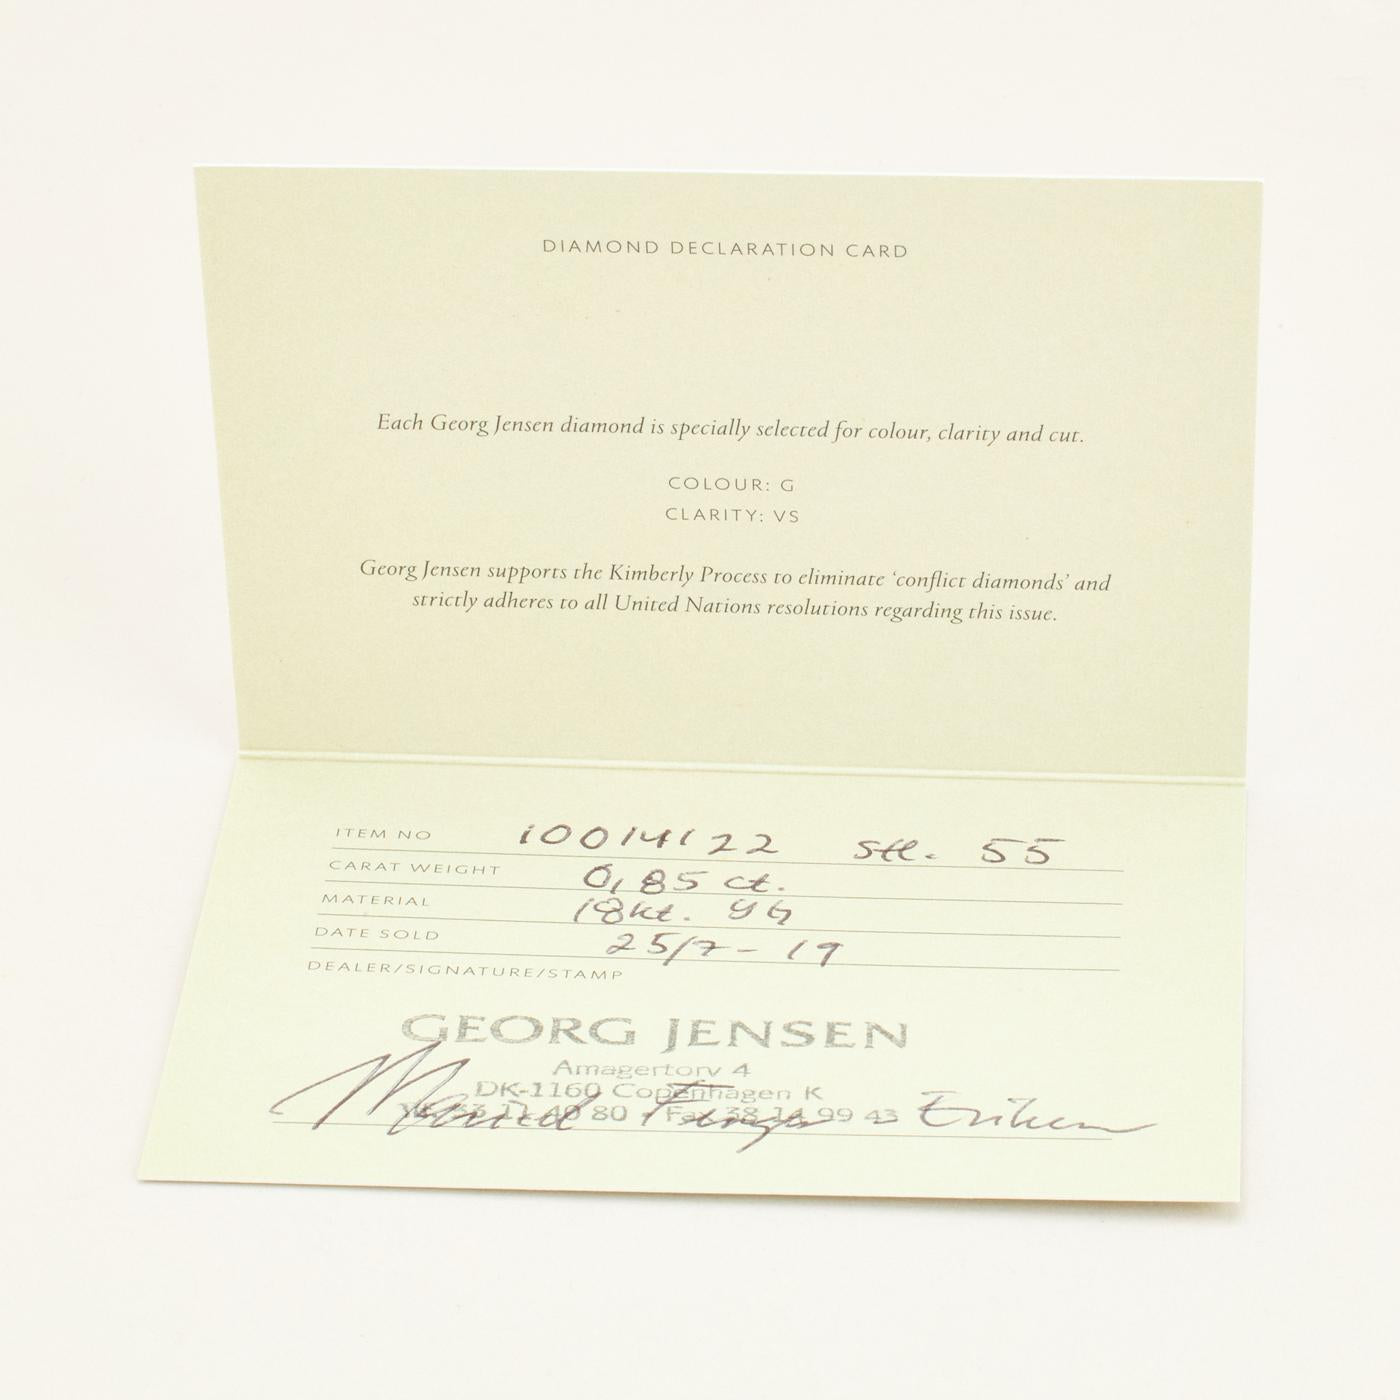 DIAMOND DECLARATION CARD
Each Georg Jensen diamond is specially selected for colour, clarity and cut.
COLOUR: G
CLARITY: VS
Georg Jensen supports the Kimberly Process to eliminate ‘conflict diamonds’ and
strictly adheres to all United Nations resolutions regarding this issue.
ITEM NO 10014122 Stl. 55
CARAT WEIGHT 0,85 ct.
MATERIAL 18kt. YG
DATE SOLD 25/7-19
DEALER/SIGNATURE/STAMP
GEORG JENSEN
Amagertorv 4
DK-1160 Copenhagen K
80 Fax 38 14 99 43